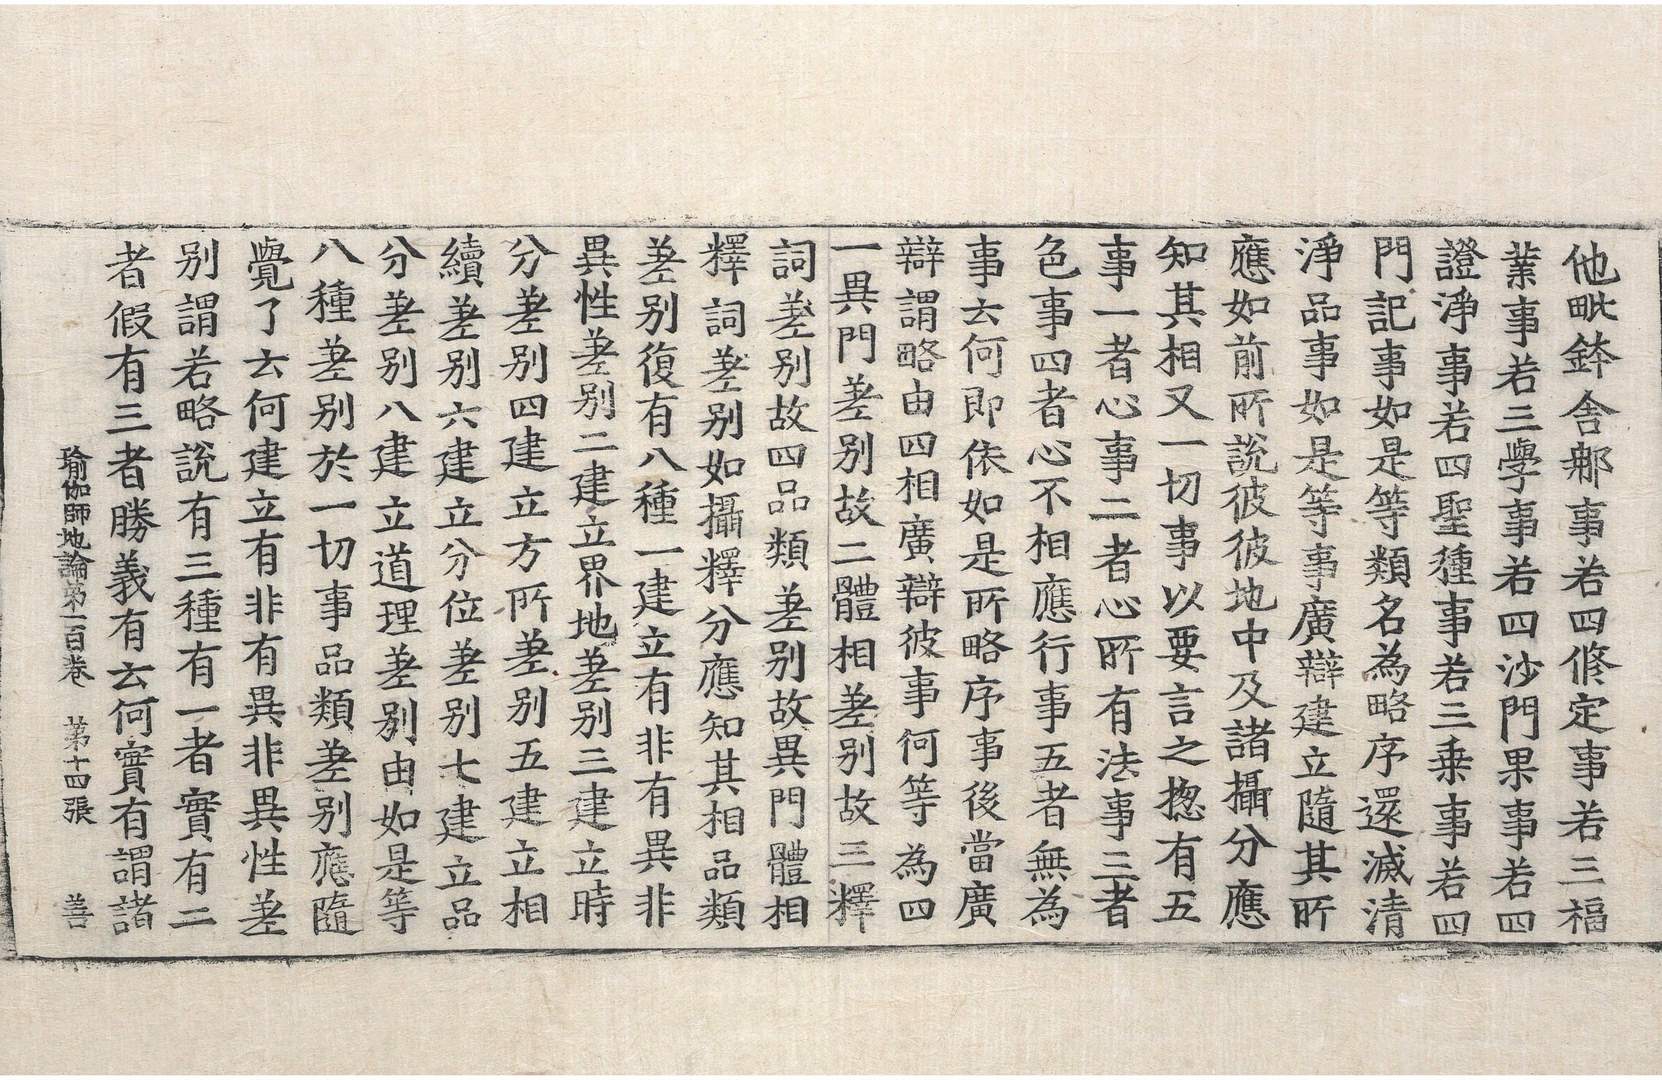 他毗鉢舍那事若四修定事若三福
業事若三學事若四沙門果事若四
證淨事若四聖種事若三乗事若四
門記事如是等類名為略序還滅清
淨品事如是等事廣辯建立隨其所
應如前所說彼彼地中及諸攝分應
知其相又一切事以要言之揔有五
事一者心事二者心所有法事三者
色事四者心不相應行事五者無為
事云何即依如是所略序事後當廣
辯謂略由四相廣辯彼事何等為四
一異門差別故二體相差別故三釋
詞差別故四品類差別故異門體相
釋詞差別如攝釋分應知其相品類
差別復有八種一建立有非有異非
異性差別二建立界地差別三建立時
分差別四建立方所差別五建立相
續差別六建立分位差別七建立品
分差別八建立道理差別由如是等
八種差別於一切事品類差別應隨
覺了云何建立有非有異非異性差
別謂若略說有三種有一者實有二
者假有三者勝義有云何實有謂諸
瑜伽師地論第一百卷　第十四張　善